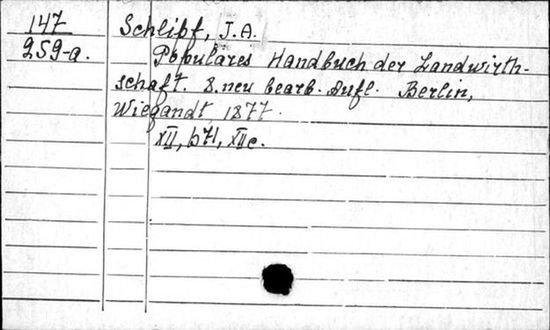 147
259-a.
Schlipf, J.A.
Populäres Handbuch der Landwirth-
schaft. 8. neu bearb. Aufl. Berlin,
Wiegandt, 1877.
XII, 671, XII c.